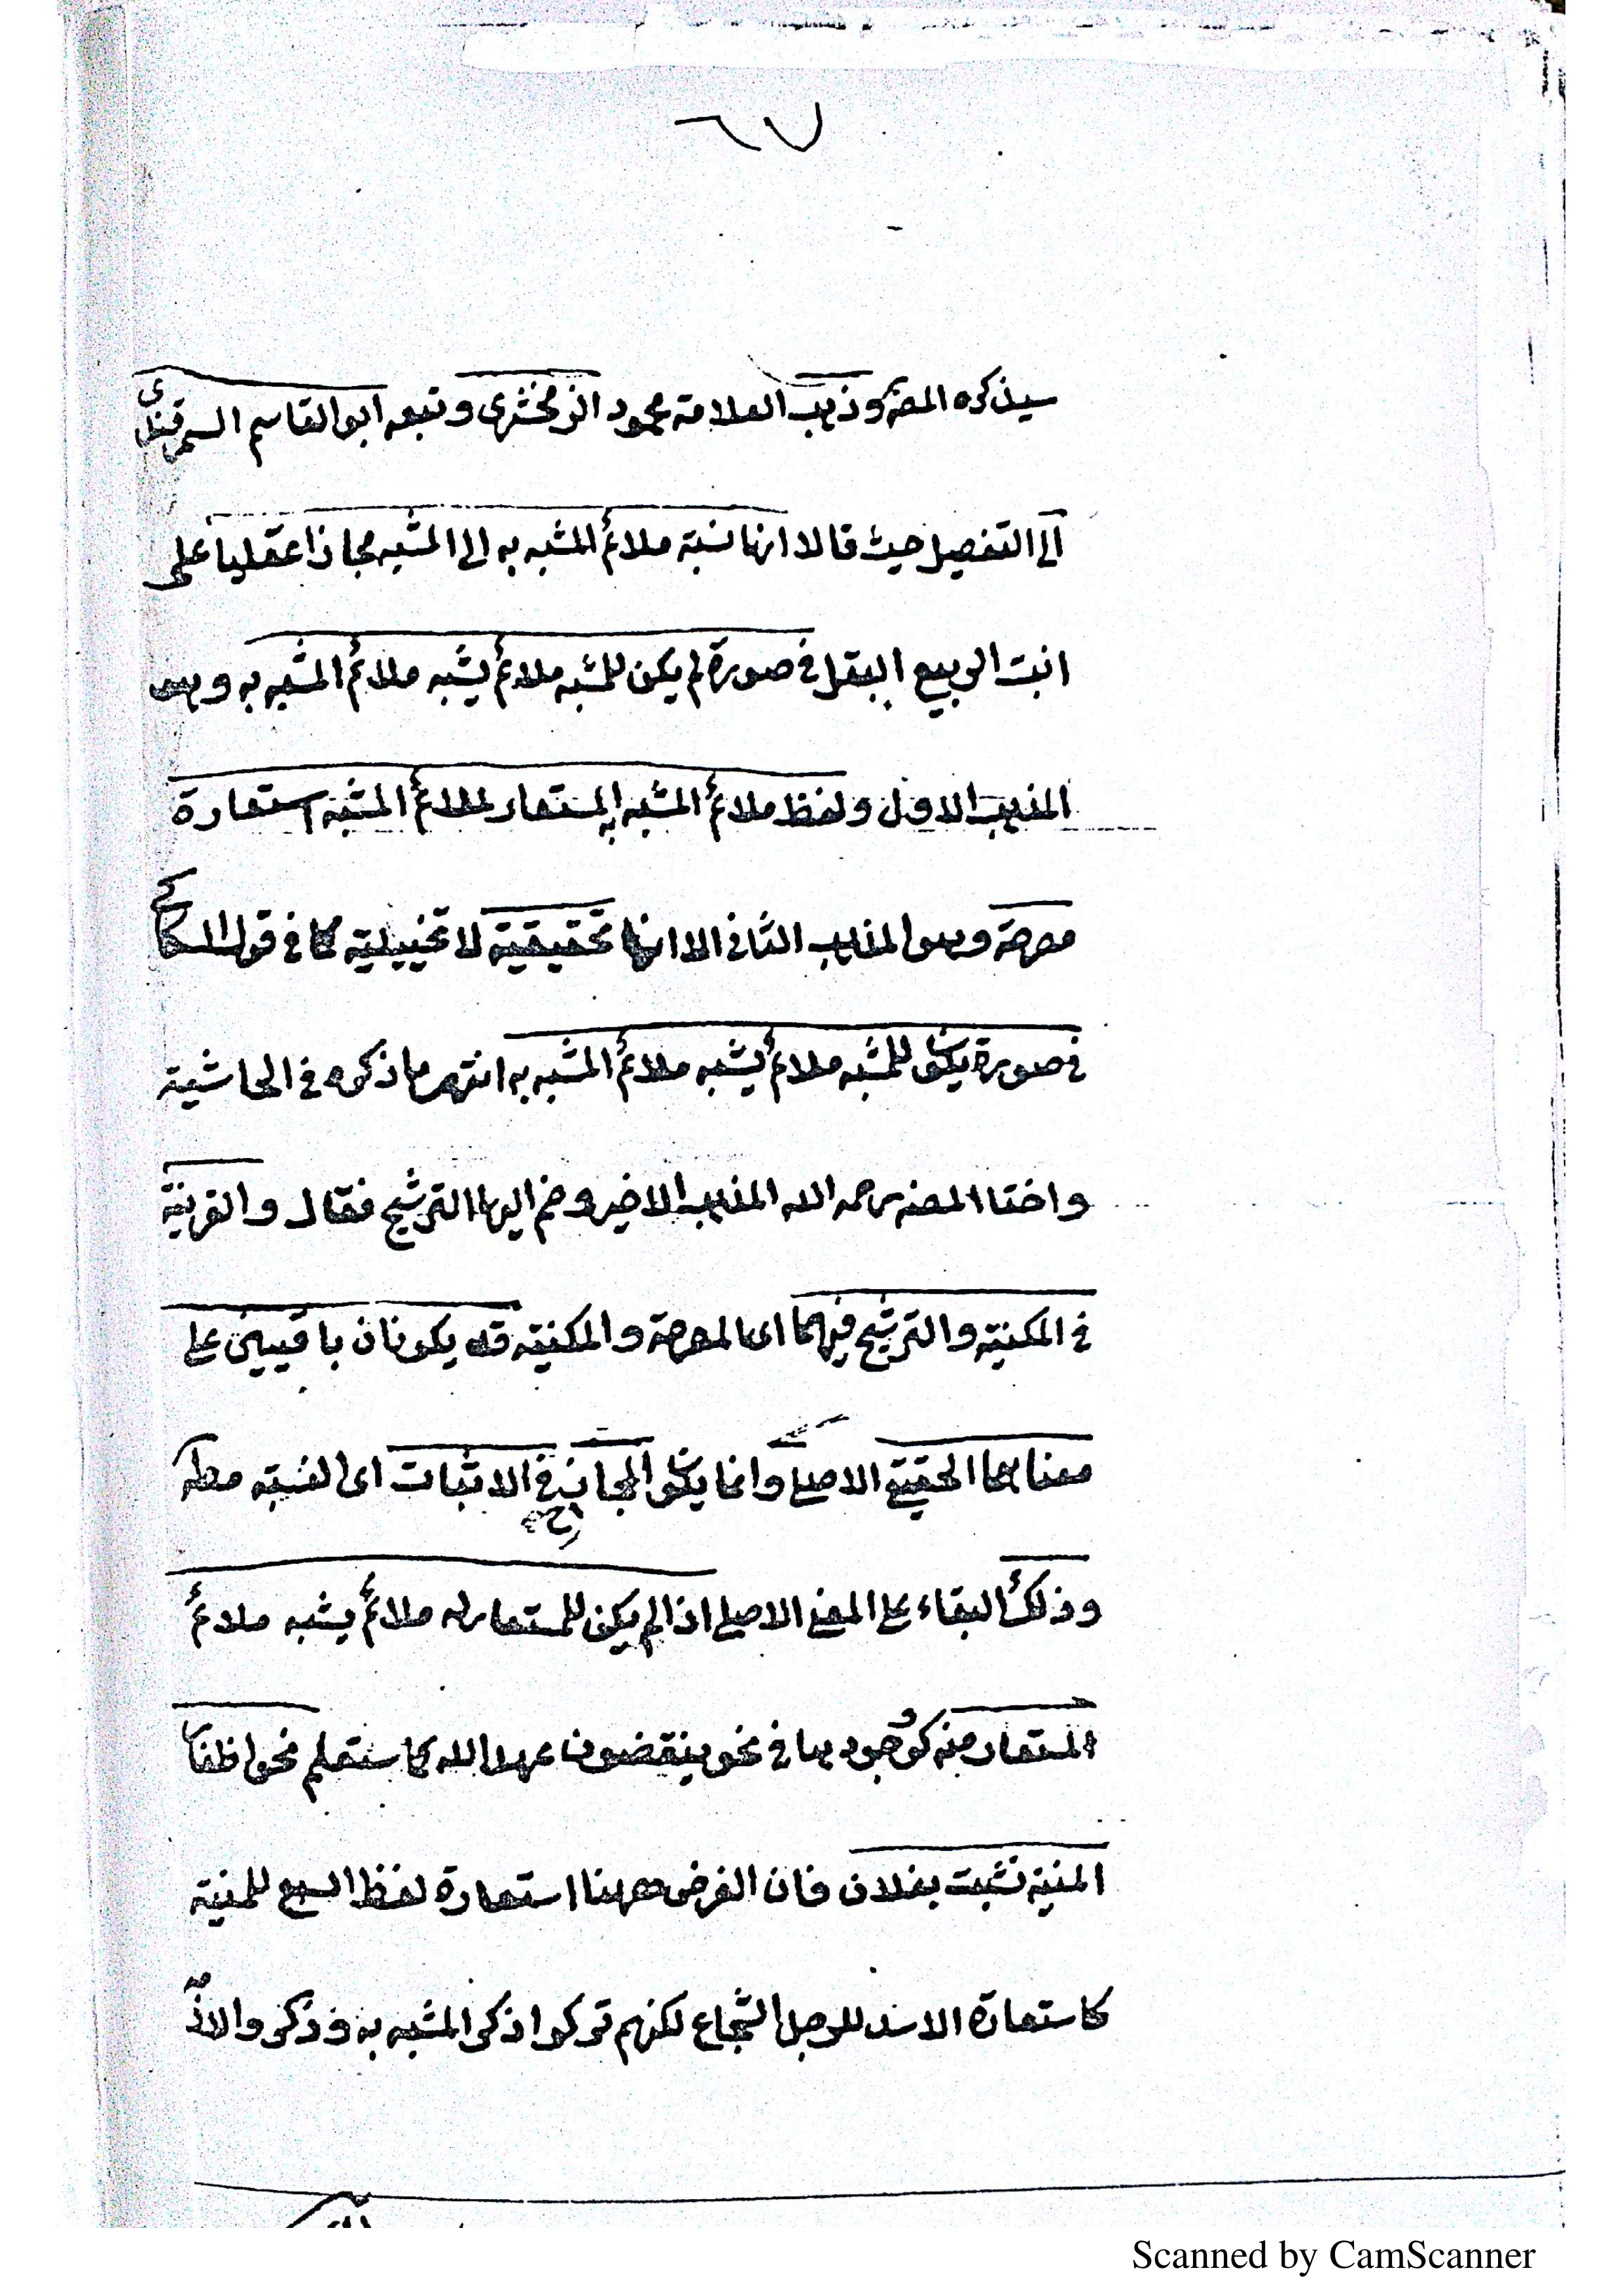 ٦٧
سيذكره المصـ وذهب العلامة محمود الزمخشرى وتبعه ابو القاسم السمرقندى
الى التفصيل حيث قالا انها نسبة ملائم المشبه به الى المشبه مجازا عقليا على
انبت الربيع البقل فى صورة لم يكن للمشبه ملائم يشبه ملائم المشبه به وهو
المذهب الاول ولفظ ملائم المشبه به المستعار لملائم المشبه استعارة
مصرحة وهو المذهب الثانى الا انها تحقيقية لا تخييلية كما فى قول السكاكى
فى صورة يكون للمشبه ملائم يشبه ملائم المشبه به انتهى ما ذكره فى الحاشية
واختا المصنـ رحمه الله المذهب الاخير وضم اليها الترشيح فقال والقرينة
فى المكنية والترشيح فيهما اى المصرحة والمكنية قد يكونان باقيين على
معناهما الحقيقى الاصلى وانما يكون المجاز فى الاثبات اى النسبة مطلـ
وذلك البقاء على المعنى الاصلى اذا لم يكن للمستعار له ملائم يشبه ملائم
المستعار منه كوجودها فى نحو ينقضون عهد الله كما ستعلم نحو اظفا
المنية نشبت بفلان فان الغرض ههنا استعارة لفظ السبع للمنية
كاستعارة الاسد للرجل الشجاع لكنهم تركوا ذكر المشبه به وذكروا
Scanned by CamScanner